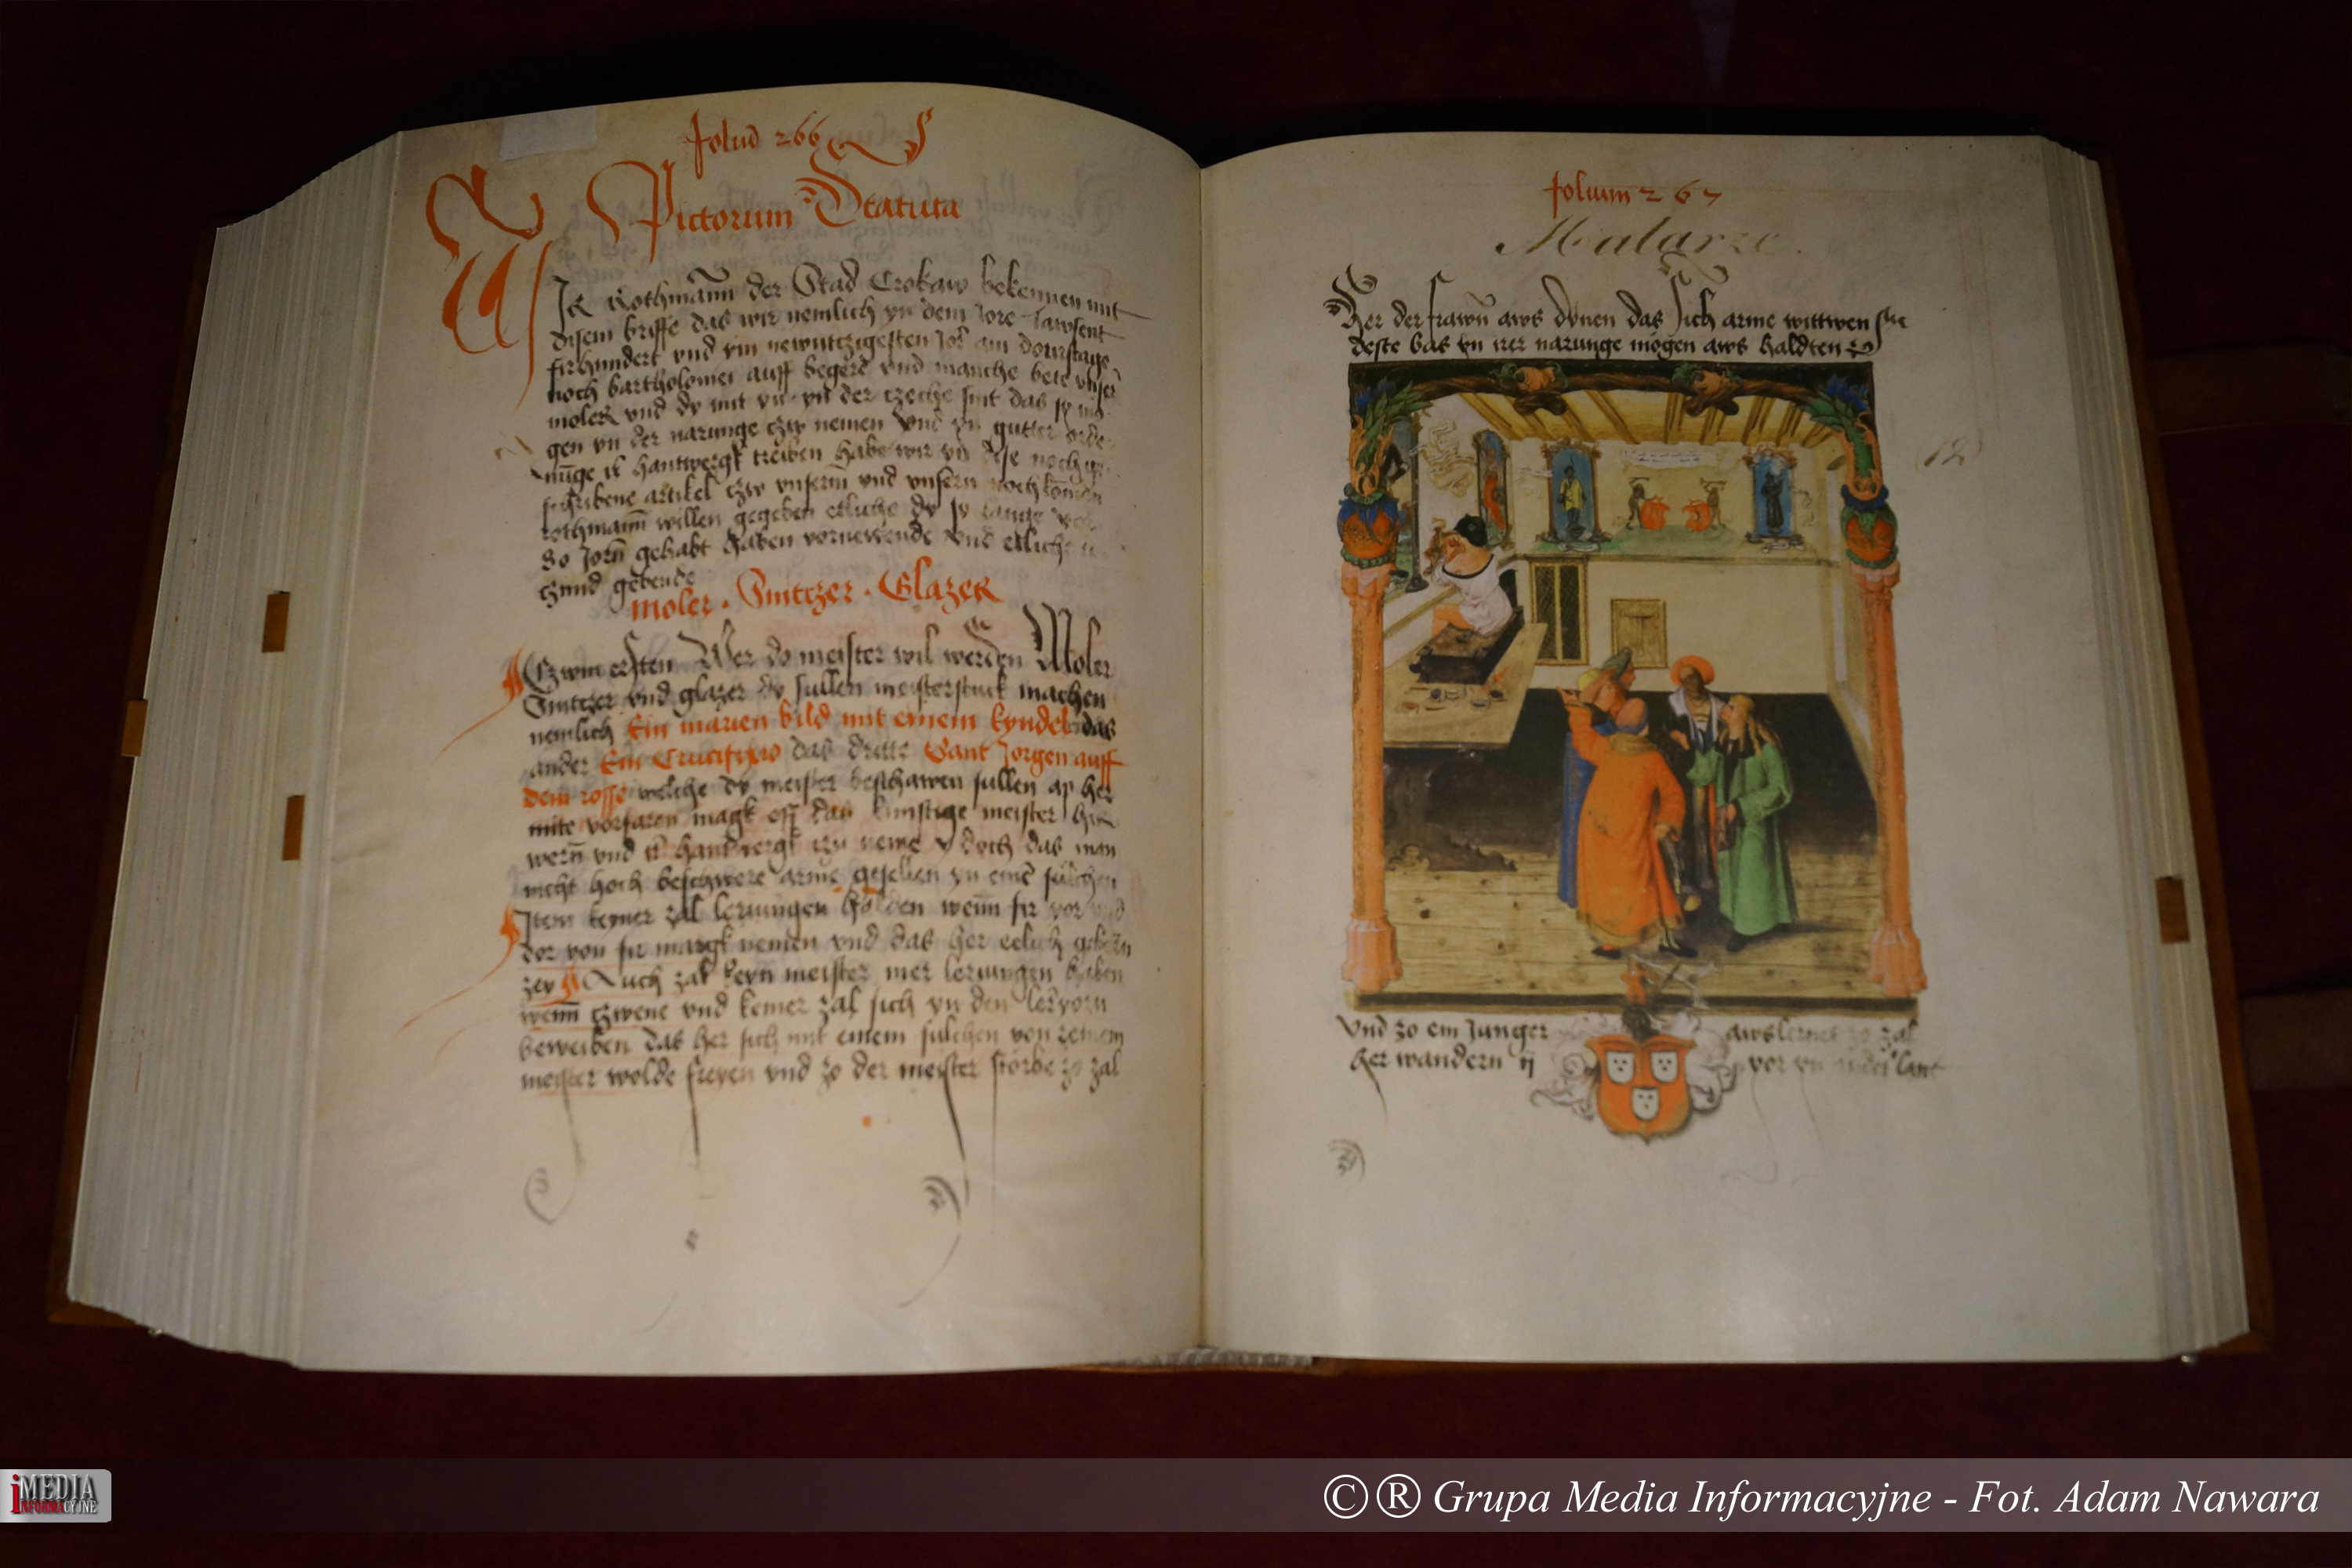 folium 266
Pictorum Statuta
WIR Rothmann der Stad Crokaw bekennen mit
disem briffe das wir nemlich yn dem Jore tawsent
firhundert vnd ym newntzigesten Jor am donrstage
noch bartholomei auff begere vnd manche bete vnser
moler vnd dy mit yn yn der czeche sint das sy mo
gen yn der narunge czw nemen vnd yn gutter orde
nunge ir hantwergk treiben habe wir yn dese noch ge
schribene artikel czw vnserm vnd vnsern nochkomen
rothmann willen gegeben etliche dy sy lange vor
So Jorn gehabt haben vornewende vnd etliche
czund gebende
moler . Snitczer . Glazer
Czwm ersten Wer do meister wil werden Moler
Snitczer vnd glazer dy sullen meisterstuck machen
nemlich Ein marien bild mit einem kyndel das
ander Ein Crucifixio das dritte Sant Jorgen auff
dem rosse welche dy meister beschawen sullen ap her
mite vorfaren magk off das kunstige meister hin
wern vnd ir hantwergk czu neme doch das man
nicht hoch beschwere arme gesellen yn eine sulchen
Item keyner zal leriungen halden wenn fir Jor vnd
dor von fir margk nemen vnd das her eelich geborn
zey Auch zal keyn meister mer leriungen haben
wenn czwene vnd keiner zal sich yn den leryorn
beweiben das her sich mit einem sulchen von zeinem
meister wolde freyen vnd zo der meister storbe zo zal
folium 267
Malarze
Her der frawn aws dynen das sich arme wittwen
deste bas yn irer narunge mogen aws haldten
(12)
Vnd zo ein Junger awslernet zo zal
her wandern ij Jor yn ander lant
iMEDIA
INFORMACYJNE
©® Grupa Media Informacyjne - Fot. Adam Nawara